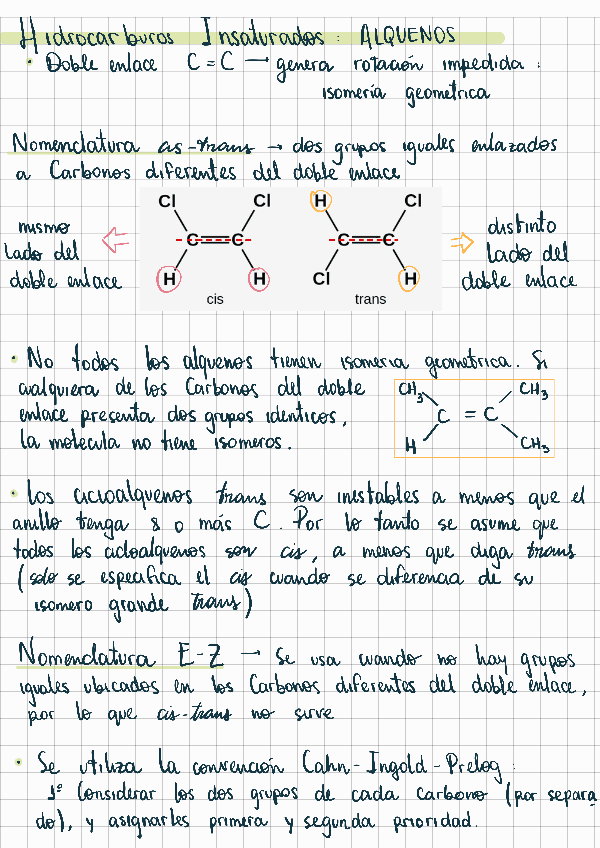 Hidrocarburos Insaturados: ALQUENOS
• Doble enlace C = C → genera rotación impedida:
isomería geometrica
Nomenclatura cis-trans → dos grupos iguales enlazados
a Carbonos diferentes del doble enlace
Cl Cl H Cl
C C C C
H H Cl H
cis trans
mismo
lado del
doble enlace
distinto
lado del
doble enlace
• No todos los alquenos tienen isomeria geometrica. Si
cualquiera de los Carbonos del doble
enlace presenta dos grupos identicos,
la molecula no tiene isomeros.
CH3 CH3
C = C
H CH3
• Los cicloalquenos trans son inestables a menos que el
anillo tenga 8 o más C. Por lo tanto se asume que
todos los cicloalquenos son cis, a menos que diga trans
(solo se especifica el cis cuando se diferencia de su
isomero grande trans)
Nomenclatura E-Z → Se usa cuando no hay grupos
iguales ubicados en los Carbonos diferentes del doble enlace,
por lo que cis-trans no sirve
• Se utiliza la convención Cahn-Ingold-Prelog:
1º Considerar los dos grupos de cada carbono (por separa
do), y asignarles primera y segunda prioridad.